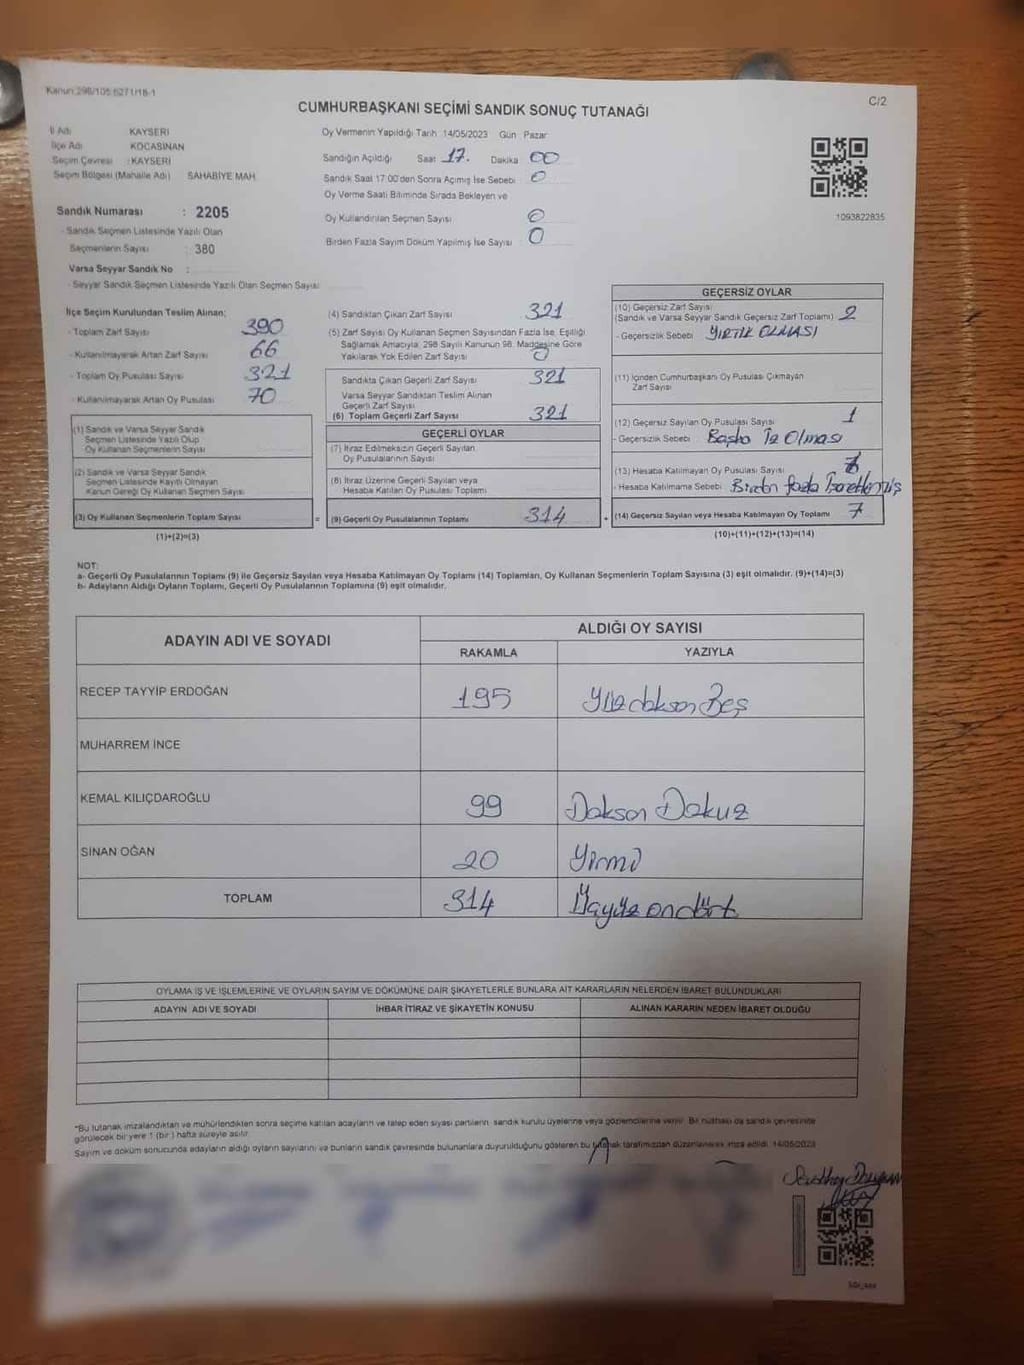 Kanun:298/105.6271/18-1
C/2
CUMHURBAŞKANI SEÇİMİ SANDIK SONUÇ TUTANAĞI
İl Adı KAYSERİ
İlçe Adı KOCASİNAN
Seçim Çevresi : KAYSERİ
Seçim Bölgesi (Mahalle Adı) SAHABİYE MAH.
Sandık Numarası : 2205
- Sandık Seçmen Listesinde Yazılı Olan
Seçmenlerin Sayısı : 380
Varsa Seyyar Sandık No :
- Seyyar Sandık Seçmen Listesinde Yazılı Olan Seçmen Sayısı:
Oy Vermenin Yapıldığı Tarih 14/05/2023 Gün Pazar
Sandığın Açıldığı Saat 17. Dakika 00
Sandık Saat 17:00'den Sonra Açımış İse Sebebi 0
Oy Verme Saati Bitiminde Sırada Bekleyen ve
Oy Kullandırılan Seçmen Sayısı 0
Birden Fazla Sayım Döküm Yapılmış İse Sayısı 0
1093822835
İlçe Seçim Kurulundan Teslim Alınan;
- Toplam Zarf Sayısı 390
- Kullanılmayarak Artan Zarf Sayısı 66
- Toplam Oy Pusulası Sayısı 321
- Kullanılmayarak Artan Oy Pusulası 70
(1) Sandık ve Varsa Seyyar Sandık
Seçmen Listesinde Yazılı Olup
Oy Kullanan Seçmenlerin Sayısı
(2) Sandık ve Varsa Seyyar Sandık
Seçmen Listesinde Kayıtlı Olmayan
Kanun Gereği Oy Kullanan Seçmen Sayısı
(3) Oy Kullanan Seçmenlerin Toplam Sayısı
(1)+(2)=(3)
(4) Sandıktan Çıkan Zarf Sayısı 321
(5) Zarf Sayısı Oy Kullanan Seçmen Sayısından Fazla İse, Eşitliği
Sağlamak Amacıyla, 298 Sayılı Kanunun 98. Maddesine Göre
Yakılarak Yok Edilen Zarf Sayısı 0
Sandıkta Çıkan Geçerli Zarf Sayısı 321
Varsa Seyyar Sandıktan Teslim Alınan
Geçerli Zarf Sayısı
(6) Toplam Geçerli Zarf Sayısı 321
GEÇERLİ OYLAR
(7) İtiraz Edilmeksizin Geçerli Sayılan
Oy Pusulalarının Sayısı
(8) İtiraz Üzerine Geçerli Sayılan veya
Hesaba Katılan Oy Pusulası Toplamı
= (9) Geçerli Oy Pusulalarının Toplamı 314 +
GEÇERSİZ OYLAR
(10) Geçersiz Zarf Sayısı
(Sandık ve Varsa Seyyar Sandık Geçersiz Zarf Toplamı) 2
- Geçersizlik Sebebi YIRTIK OLMASI
(11) İçinden Cumhurbaşkanı Oy Pusulası Çıkmayan
Zarf Sayısı
(12) Geçersiz Sayılan Oy Pusulası Sayısı 1
- Geçersizlik Sebebi Başka İz Olması
(13) Hesaba Katılmayan Oy Pusulası Sayısı
- Hesaba Katılmama Sebebi Birden fazla İşaretlenmiş
(14) Geçersiz Sayılan veya Hesaba Katılmayan Oy Toplamı 7
(10)+(11)+(12)+(13)=(14)
NOT:
a- Geçerli Oy Pusulalarının Toplamı (9) ile Geçersiz Sayılan veya Hesaba Katılmayan Oy Toplamı (14) Toplamları, Oy Kullanan Seçmenlerin Toplam Sayısına (3) eşit olmalıdır. (9)+(14)=(3)
b- Adayların Aldığı Oyların Toplamı, Geçerli Oy Pusulalarının Toplamına (9) eşit olmalıdır.
ADAYIN ADI VE SOYADI ALDIĞI OY SAYISI
RAKAMLA YAZIYLA
RECEP TAYYİP ERDOĞAN 195 Yüzdoksan Beş
MUHARREM İNCE
KEMAL KILIÇDAROĞLU 99 Doksan Dokuz
SİNAN OĞAN 20 Yirmi
TOPLAM 314 Üçyüz ondört
OYLAMA İŞ VE İŞLEMLERİNE VE OYLARIN SAYIM VE DÖKÜMÜNE DAİR ŞİKAYETLERLE BUNLARA AİT KARARLARIN NELERDEN İBARET BULUNDUKLARI
ADAYIN ADI VE SOYADI İHBAR İTİRAZ VE ŞİKAYETİN KONUSU ALINAN KARARIN NEDEN İBARET OLDUĞU
*Bu tutanak imzalandıktan ve mühürlendikten sonra seçime katılan adayların ve talep eden siyasi partilerin, sandık kurulu üyelerine veya gözlemcilerine verilir. Bir nüshası da sandık çevresinde
görülecek bir yere 1 (bir) hafta süreyle asılır.
Sayım ve döküm sonucunda adayların aldığı oyların sayılarını ve bunların sandık çevresinde bulunanlara duyurulduğunu gösteren bu tutanak tarafımızdan düzenlenerek imza edildi. 14/05/2023